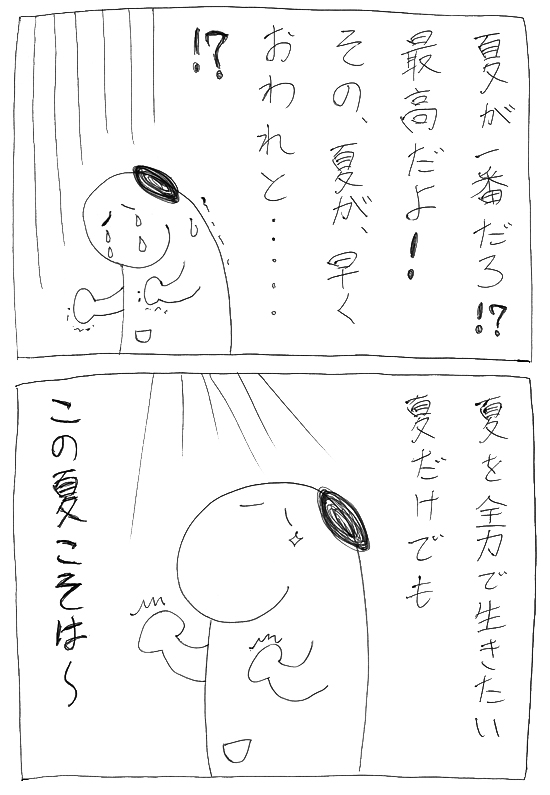 夏が一番だろ!?
最高だよ!
その、夏が、早く
おわれと・・・・・
!?
夏を全力で生きたい
夏だけでも
この夏こそは〜